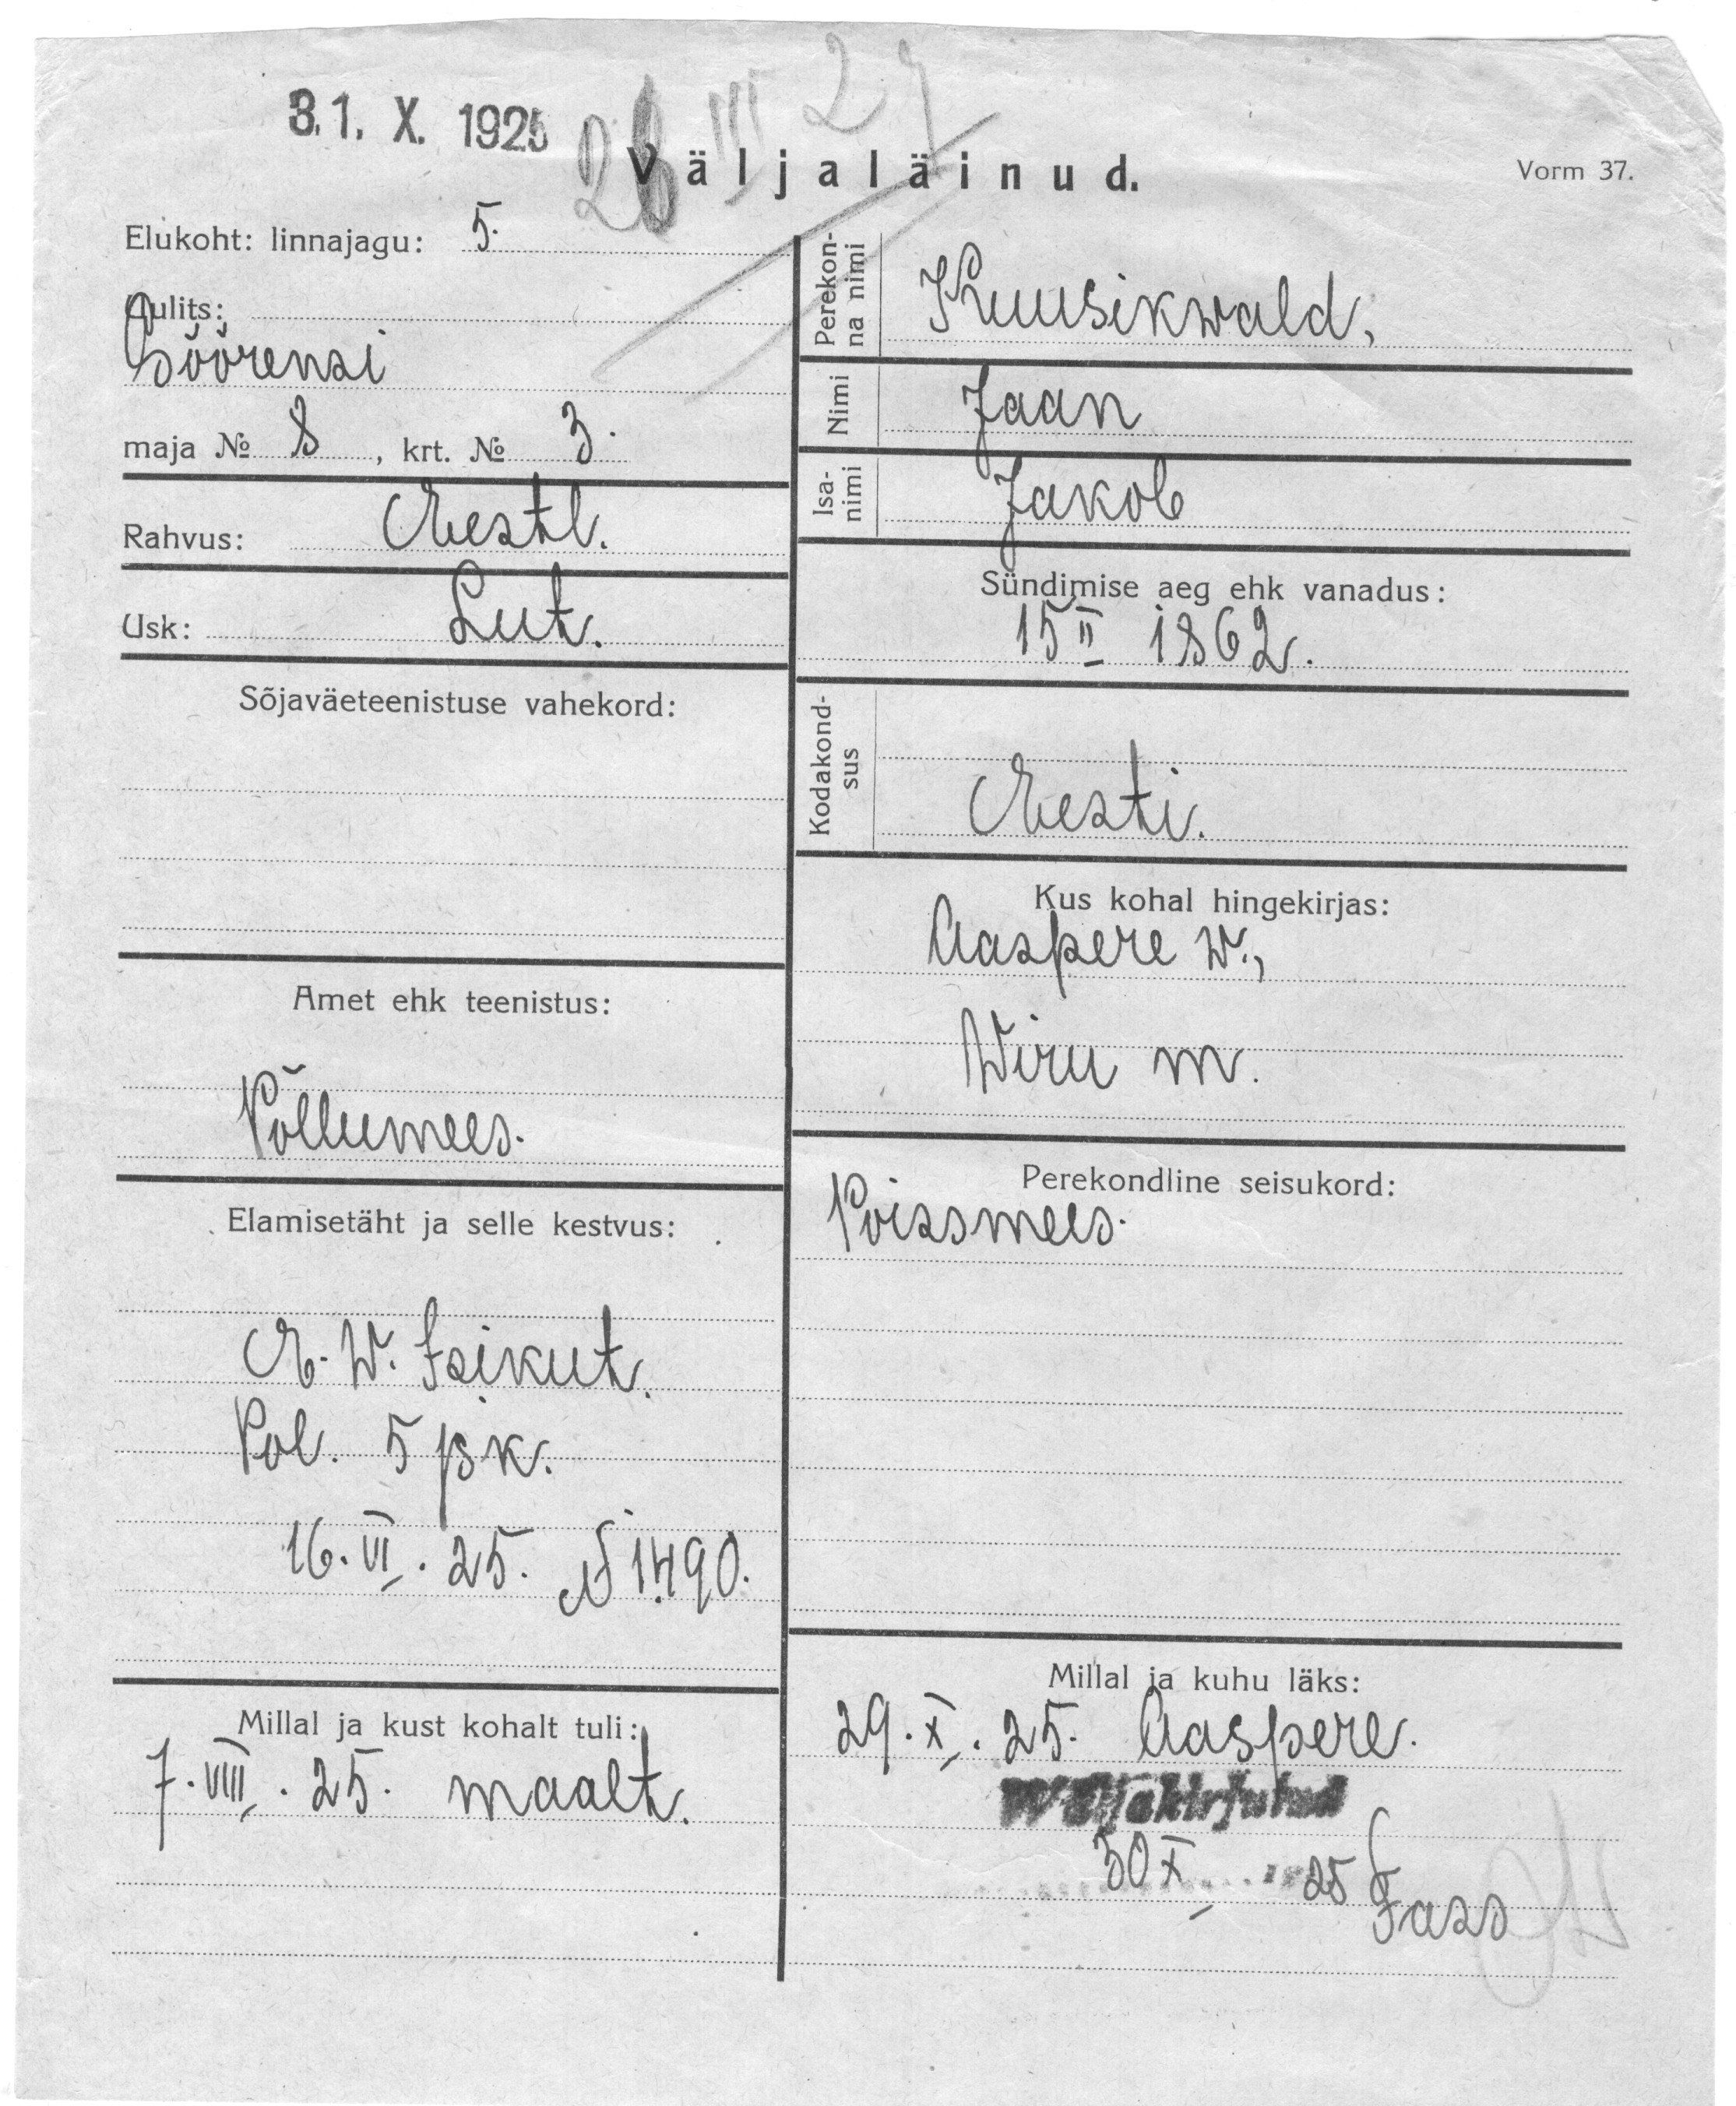 31. X. 1925
28 III 27
Väljaläinud.
Vorm 37.
Elukoht: linnajagu: 5.
Uulits:
Söörensi
maja № 8, krt. № 3.
Rahvus: Eestl.
Usk: Lut.
Sõjaväeteenistuse vahekord:
Amet ehk teenistus:
Põllumees.
Elamisetäht ja selle kestvus:
E. W. Isikut.
Pol. 5 jsk.
16. VI. 25. N 1490.
Millal ja kust kohalt tuli:
7. VIII. 25. maalt.
Perekon-
na nimi
Kuusikwald,
Nimi
Jaan
Isa-
nimi
Jakob
Sündimise aeg ehk vanadus:
15 II 1862.
Kodakond-
sus
Eesti.
Kus kohal hingekirjas:
Aaspere w.,
Wiru m.
Perekondline seisukord:
Poissmees.
Millal ja kuhu läks:
29. X. 25. Aaspere.
Wäljakirjutud
30 X 25 Fass